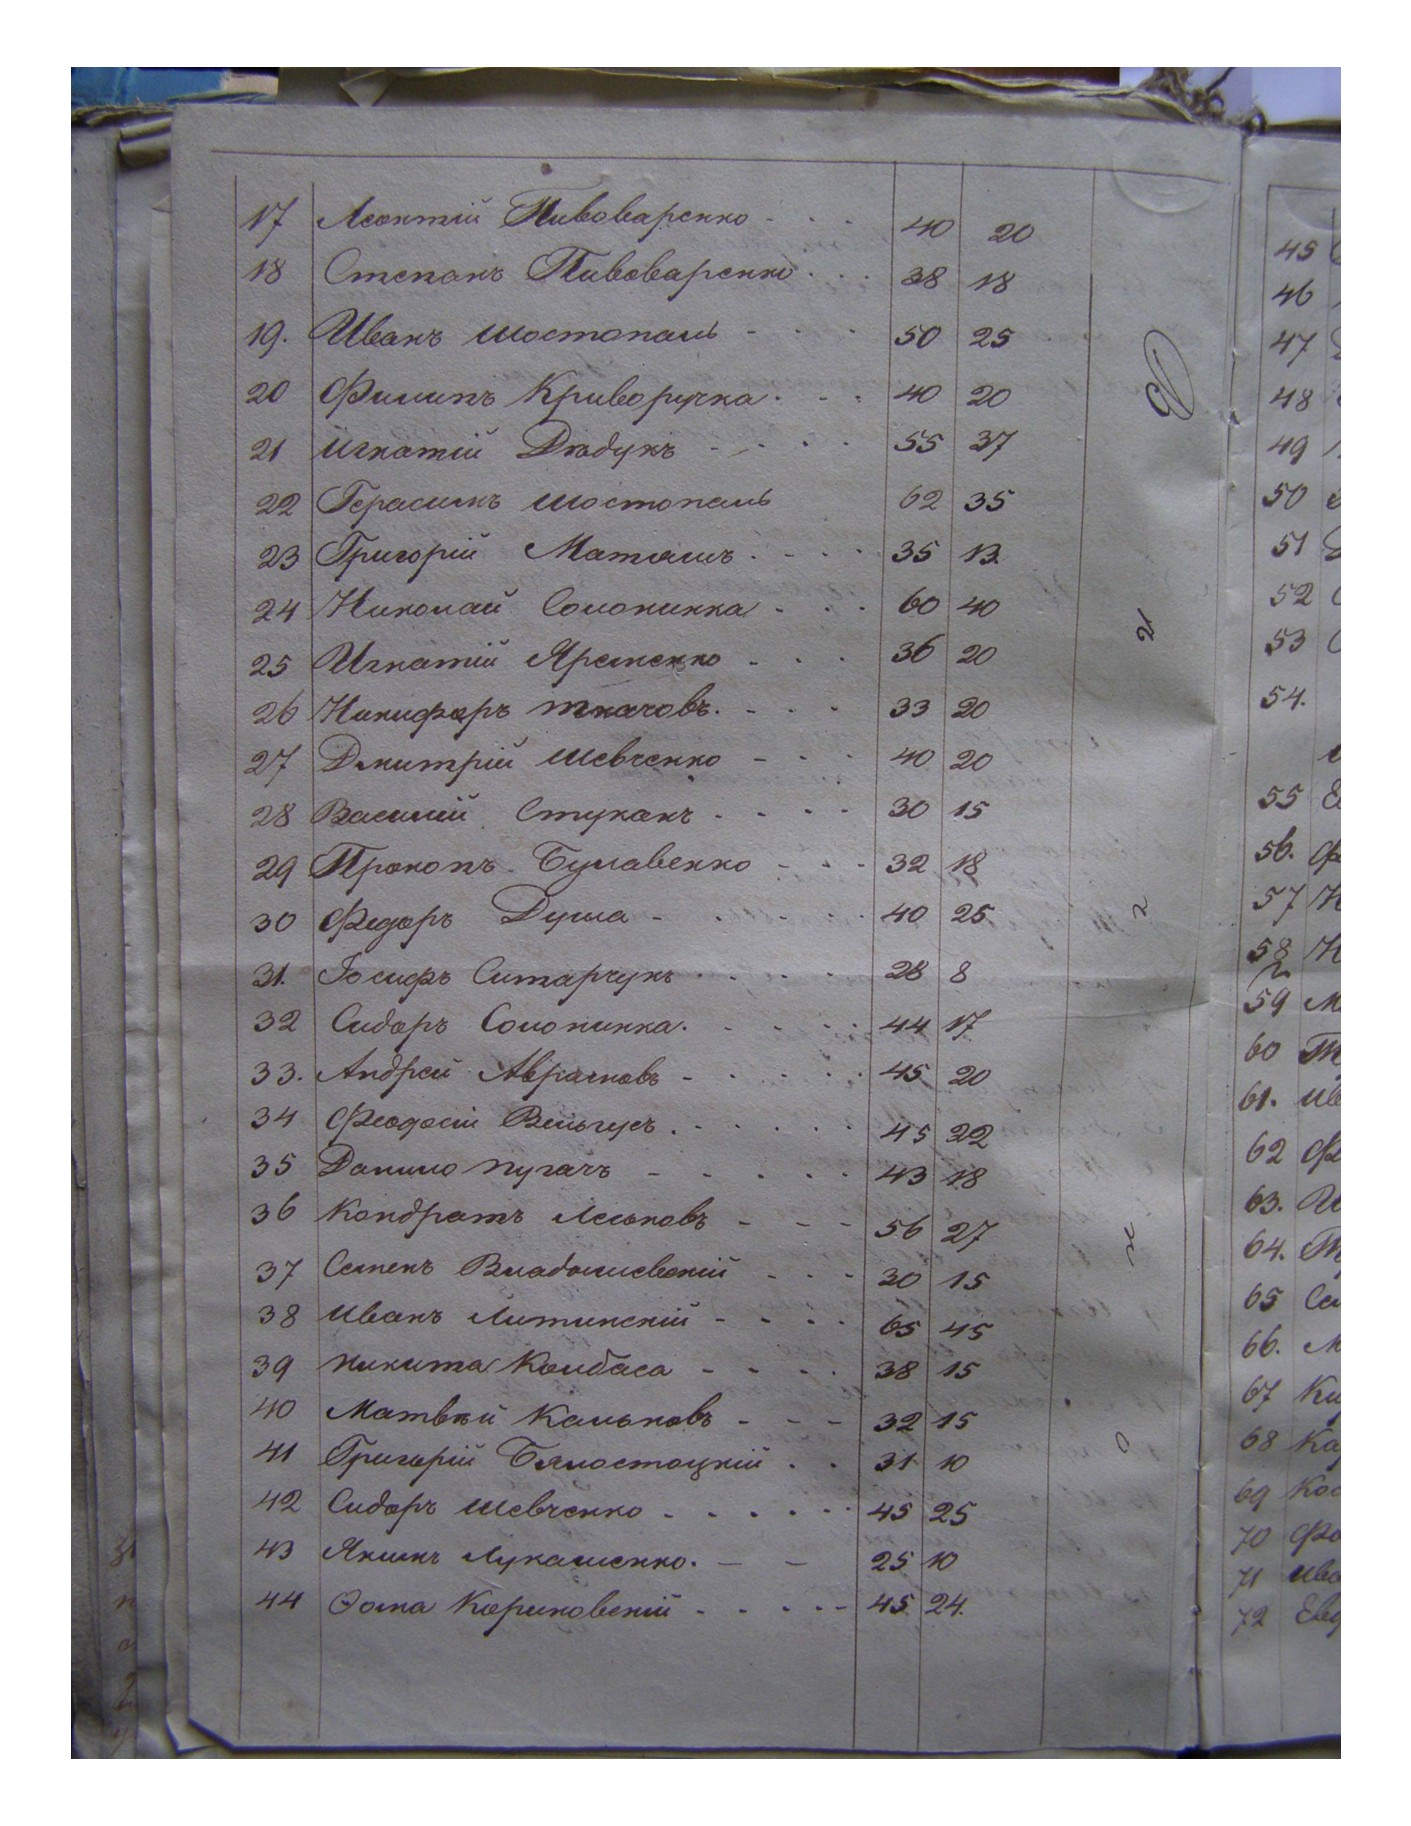 17 Леонтій Пивоваренко - - - 40 20
18 Степанъ Пивоваренко . . . 38 18
19. Иванъ Шостопаль - - - 50 25
20 Филипъ Криворучка . - - 40 20
21 Игнатій Дѣдукъ - - - - 55 37
22 Герасимъ Шостопаль 62 35
23 Григорій Маташъ . - - - 35 13.
24 Николай Солонинка - - - 60 40
25 Игнатій Яременко - - - 36 20
26 Никифоръ Ткачовъ. - - - 33 20
27 Дмитрій Шевченко - - - 40 20
28 Василій Стуканъ - - - - 30 15
29 Прокопъ Булавенко - - - 32 18
30 Федоръ Душа - - - - - 40 25
31. Іосифъ Ситарчукъ - - - - 28 8
32 Сидоръ Солонинка. - - - - 44 17
33. Андрей Аврамовъ - - - - - 45 20
34 Феодосій . - - - - - 45 22
35 Данило Пугачъ - - - - - 43 18
36 Кондратъ Леськовъ - - - 56 27
37 Семенъ - - - 30 15
38 Иванъ Литинскій - - - - 65 45
39 Никита Колбаса - - - - 38 15
40 Матвѣй Кальковъ - - - 32 15
41 Григорій Бялостоцкій . . 31 10
42 Сидоръ Шевченко - - - - - 45 25
43 Якимъ Лукашенко. - - 25 10
44 Ѳома Кориковскій - - - - - 45 24.
45
46
47
48
49
50
51
52
53
54.
55
56.
57
58
59
60
61.
62
63.
64.
65
66.
67
68
69
70
71
72